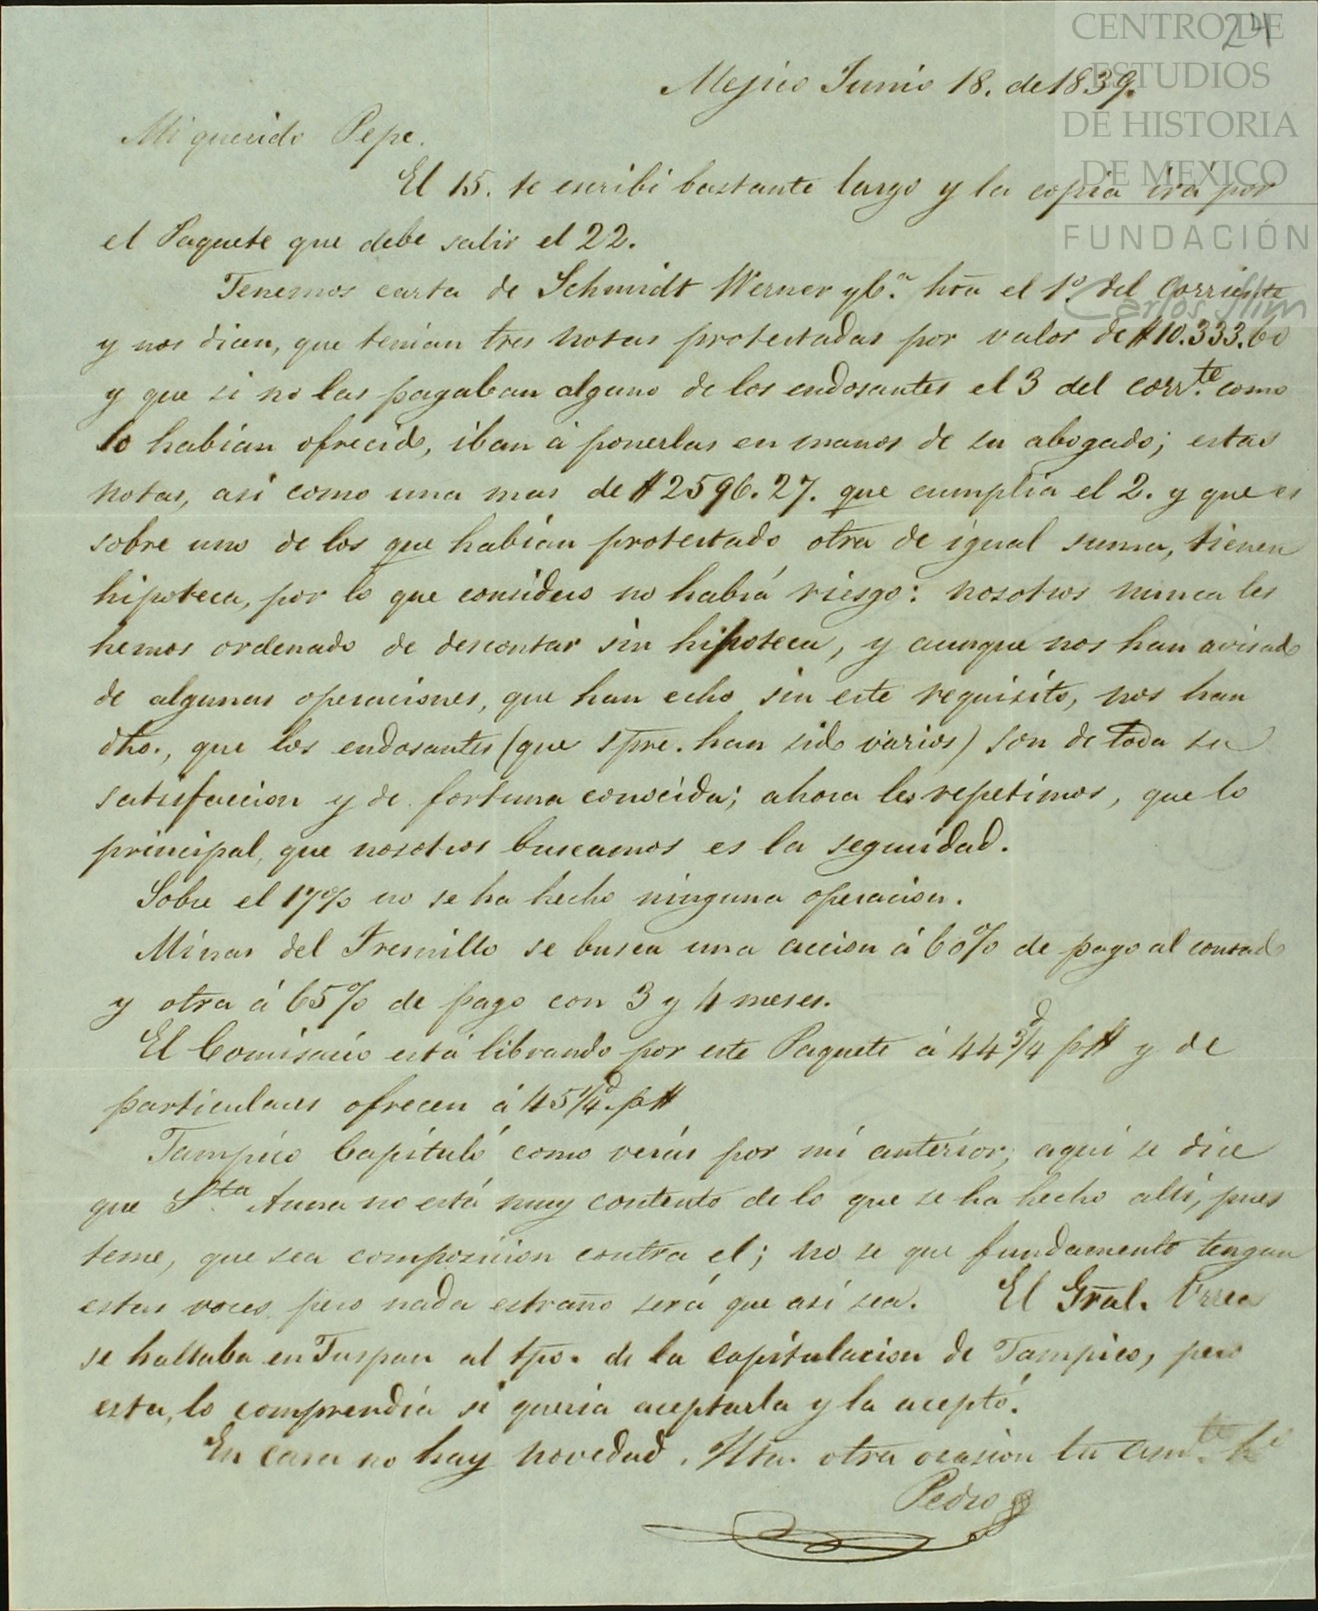 24
CENTRO DE
ESTUDIOS
DE HISTORIA
DE MEXICO
FUNDACIÓN
Carlos Slim
Mejico Junio 18. de 1839.
Mi querido Pepe.
El 15. te escribi bastante largo y la copia irá por
el Paquete que debe salir el 22.
Tenemos carta de Schmidt Werner y Cª hta el 1º del Corriente
y nos dicen, que tenian tres notas protestadas por valor de $10.333.60
y que si no las pagaban alguno de los endosantes el 3 del corr.te como
lo habian ofrecido, iban á ponerlas en manos de su abogado; estas
notas, asi como una mas de $2596.27. que cumplia el 2. y que es
sobre uno de los que habian protestado otra de igual suma, tienen
hipoteca, por lo que considero no habrá riesgo: nosotros nunca les
hemos ordenado de descontar sin hipoteca, y aunque nos han avisado
de algunas operaciones, que han echo sin este requisito, nos han
dho., que los endosantes (que spre. han sido varios) son de toda su
satisfaccion y de fortuna conocida; ahora les repetimos, que lo
principal, que nosotros buscamos es la seguridad.
Sobre el 17% no se ha hecho ninguna operacion.
Minas del Fresnillo se busca una accion á 60% de pago al contado
y otra á 65% de pago con 3 y 4 meses.
El Comisario está librando por este Paquete á 44 3/4 d p$ y de
particulares ofrecen á 45 1/4 d. p$
Tampico Capituló como verás por mi anterior; aqui se dice
que S.ta Anna no está muy contento de lo que se ha hecho alli, pues
teme, que sea composicion contra el; no se que fundamento tengan
estas voces pero nada estraño será que asi sea. El Gral. Urrea
se hallaba en Tuspan al tpo. de la capitulacion de Tampico, pero
esta, lo comprendia si queria aceptarla y la aceptó.
En casa no hay novedad. Hta. otra ocasion tu am.te
Pedro